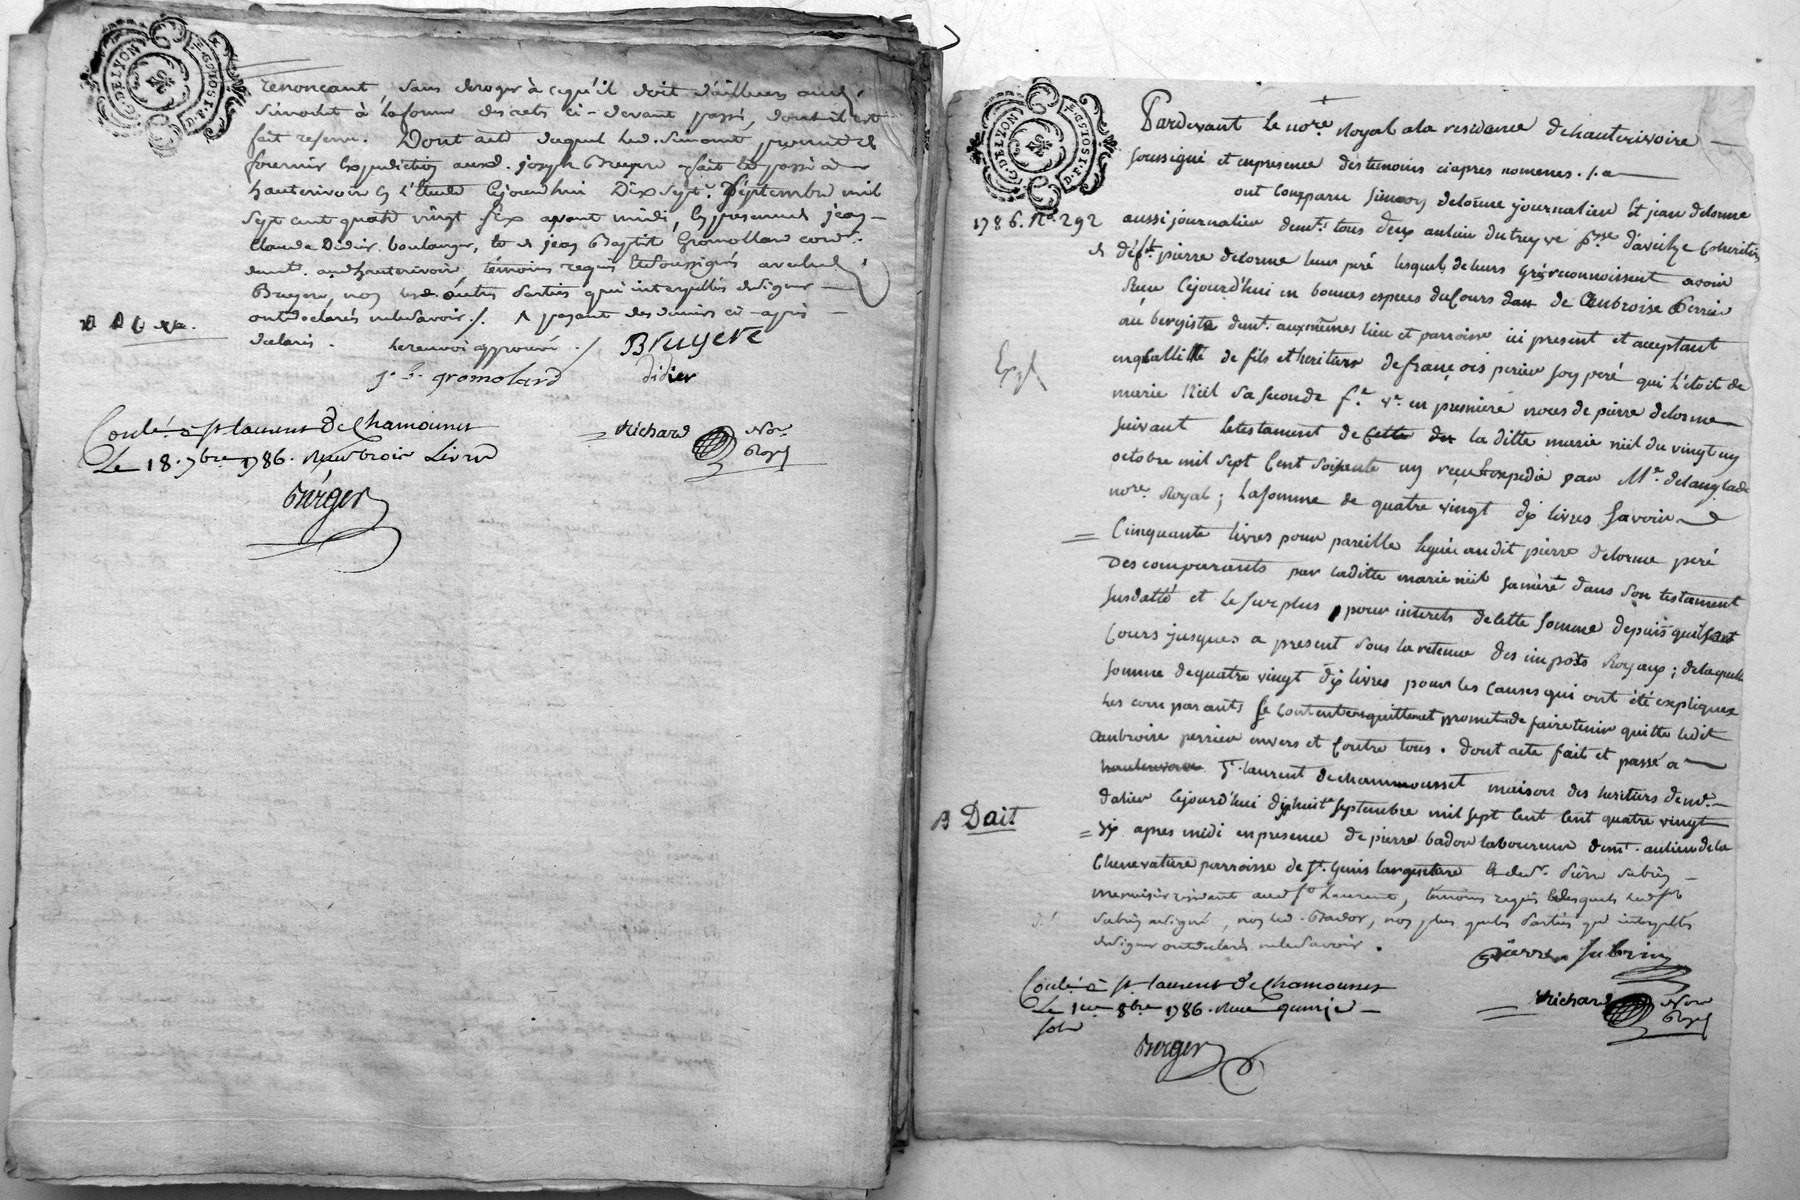 G. DE LYON
2. SOLS P. F.
renonçant sans deroger à ce qu'il doit d'ailleurs aud.
Simonet à la forme des actes ci-devant passés, dont il est
fait reserve. Dont acte duquel led. Simonet promet de
fournir expedition aud. joseph Bruyere fait et passé à
hauterivoire en l'étude cejourdhui Dix sept. Septembre mil
sept cent quatre vingt six avant midi, en presence de jean
Claude Didier boulanger, et de jean Baptiste Gromollard cord.
demt. aud. hauterivoire, témoins requis et soussignés avec led.
Bruyere, non les autres parties qui interpellés de signer
ont declarés ne le savoir ./. A payant des deniers ci-apres
declarés. le renvoi approuvé ./. Bruyere
j. b. gromolard didier
Conlé à St. laurent De Chamousset
Le 18. 7bre 1786. Reçu trois Livres
Richard Nore. Royal
Berger
G. DE LYON
2. SOLS P. F.
Pardevant le nore. royal a la residance de hauterivoire
soussigné et en presence des temoins ci apres nomenes ./.
1786. No. 292
ont comparu Simon delorme journalier et jean delorme
aussi journalier demt. tous deux au lieu du treyve psse d'aveize coheritiers
de déft. pierre delorme leur peré lesquel de leurs grés reconnoissent avoir
Reçu Cejourd'hui en bonnes especes du Cours de Ambroise Perrier
aubergiste demt. aux mêmes lieu et parroisse ici present et acceptant
Exp.
en quallitté de fils et heritier de françois perier son peré qui l'étoit de
marie Niël sa seconde fe. ve. en premiere noces de pierre delorme
suivant le testament de la ditte marie niël du vingt un
octobre mil sept Cent soixante un reçu et expedié par Me. delanglade
nore. Royal; la somme de quatre vingt dix livres savoir
Cinquante livres pour pareille leguée audit pierre delorme peré
Des comparants par laditte marie niël sa mère dans son testament
susdatté et le surplus pour interets de cette somme depuis qu'ils ont
Cours jusques a present sous la retenue des impôts Royaux; de laquelle
somme de quatre vingt dix livres pour les causes qui ont été expliquées
les comparants se contentent quittent et promettent de faire tenir quitte ledit
Ambroise perrier envers et contre tous. dont acte fait et passé a
hauterivoire St. laurent de chammousset maison des heritiers de
B Dait
cejourd'hui dix huit septembre mil sept cent cent quatre vingt
six apres midi en presence de pierre bador laboureur demt. au lieu de la
Chenevature parroisse de St. Genis largentiere et de sr. Pierre Subrin
menuisier residant aud. St. Laurent, temoins requis desquels led. sr.
Subrin a signé, non led. Bador, non plus que les Parties qui interpellés
de signer ont declarés ne le savoir.
pierre Subrin
Conlé à St. laurent de Chamousset
Le 1er 8bre 1786. Reçu quinze
sols
Richard Nore Royal
Berger